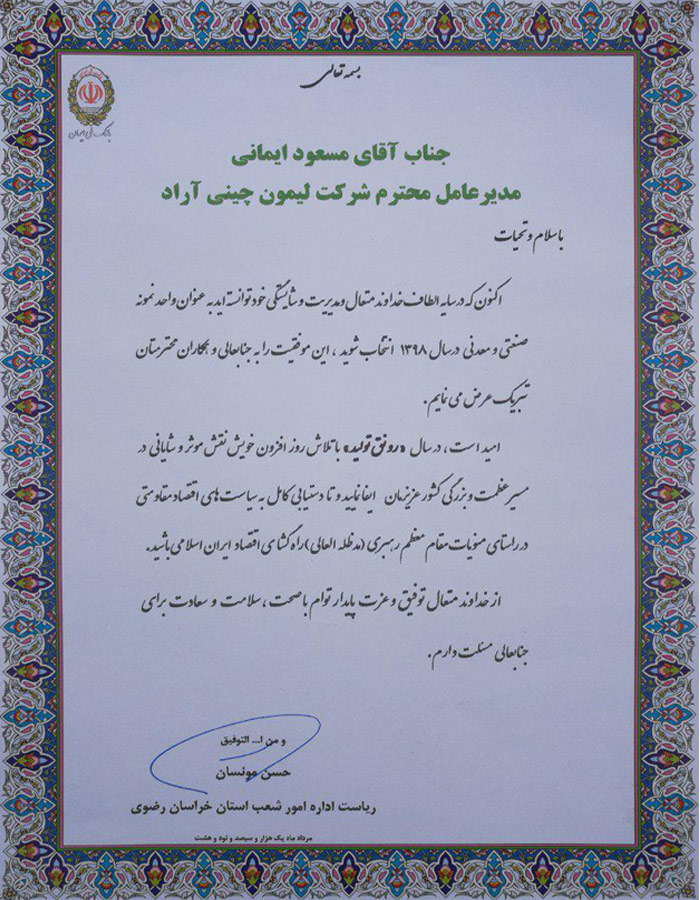 بسمه تعالی
بانک ملی ایران
جناب آقای مسعود ایمانی
مدیرعامل محترم شرکت لیمون چینی آراد
با سلام و تحیات
اکنون که در سایه الطاف خداوند متعال و مدیریت و شایستگی خود توانسته اید به عنوان واحد نمونه
صنعتی و معدنی در سال ۱۳۹۸ انتخاب شوید ، این موفقیت را به جنابعالی و همکاران محترمتان
تبریک عرض می نمایم.
امید است ، در سال «رونق تولید» با تلاش روز افزون خویش نقش موثر و شایانی در
مسیر عظمت و بزرگی کشور عزیزمان ایفا نمایید و تا دستیابی کامل به سیاست های اقتصاد مقاومتی
در راستای منویات مقام معظم رهبری (مدظله العالی) راه گشای اقتصاد ایران اسلامی باشید.
از خداوند متعال توفیق و عزت پایدار توام با صحت ، سلامت و سعادت برای
جنابعالی مسئلت دارم.
و من ا... التوفیق
حسن مونسان
ریاست اداره امور شعب استان خراسان رضوی
مرداد ماه یک هزار و سیصد و نود و هشت